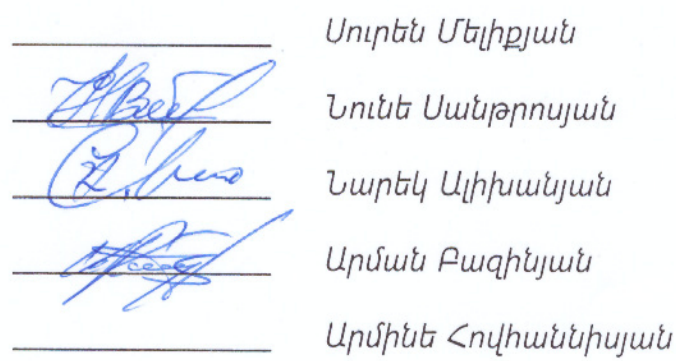 Սուրեն Մելիքյան
Նունե Սանթրոսյան
Նարեկ Ալիխանյան
Արման Բազինյան
Արմինե Հովհաննիսյան